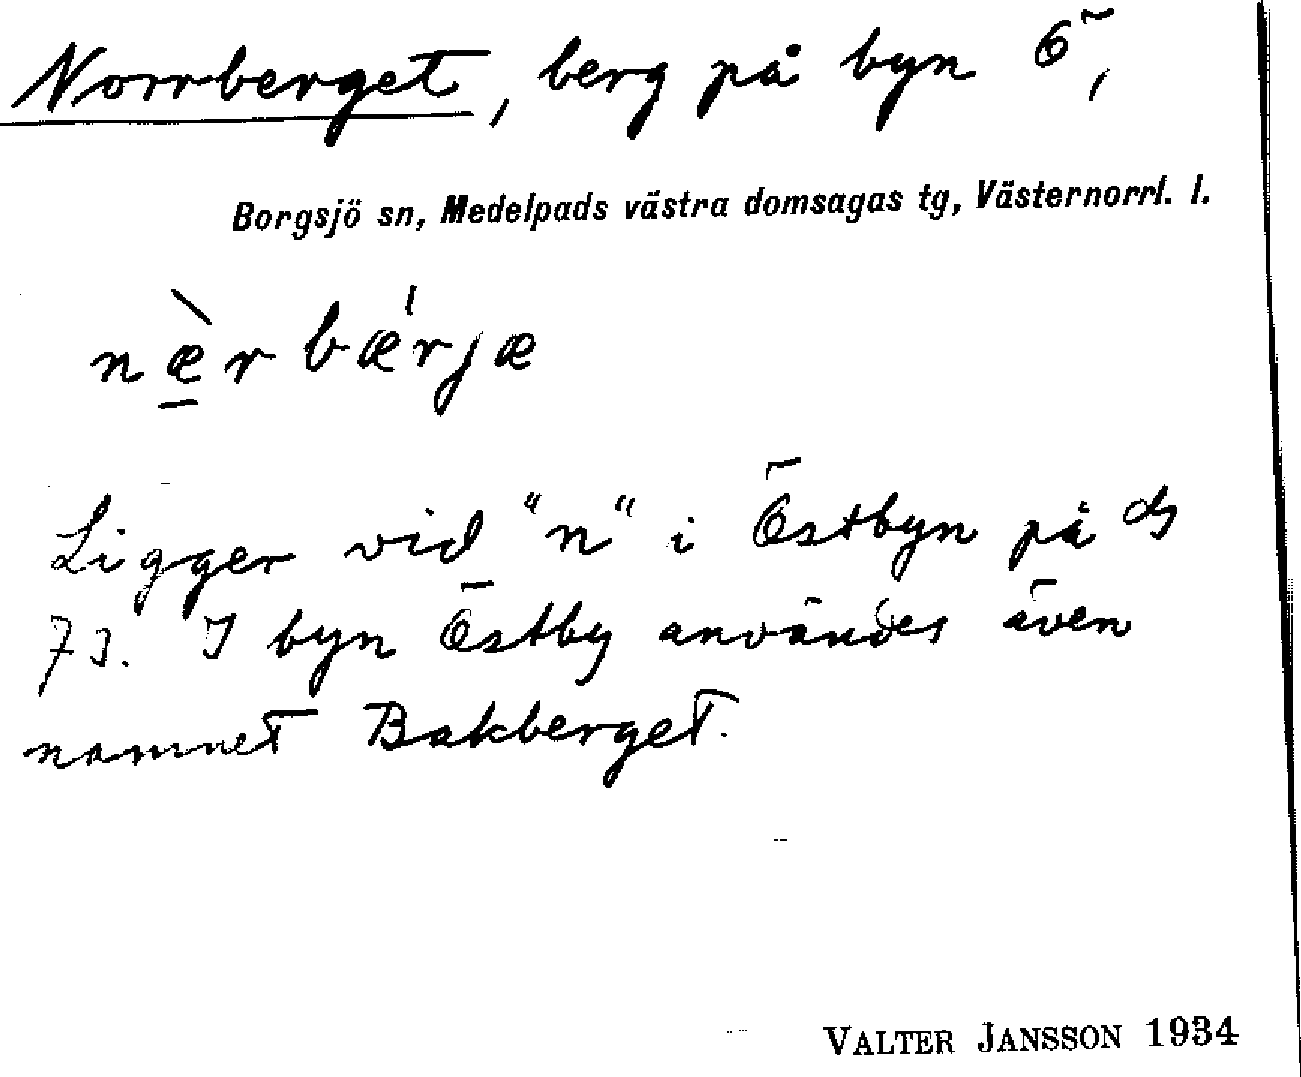 Norrberget, berg på byn Ö,
Borgsjö sn, Medelpads västra domsagas tg, Västernorrl. l.
næ̱̀rbǽrjæ
Ligger vid "n" i Östbyn på ds
73. I byn Östby användes även
namnet Bakberget.
VALTER JANSSON 1934